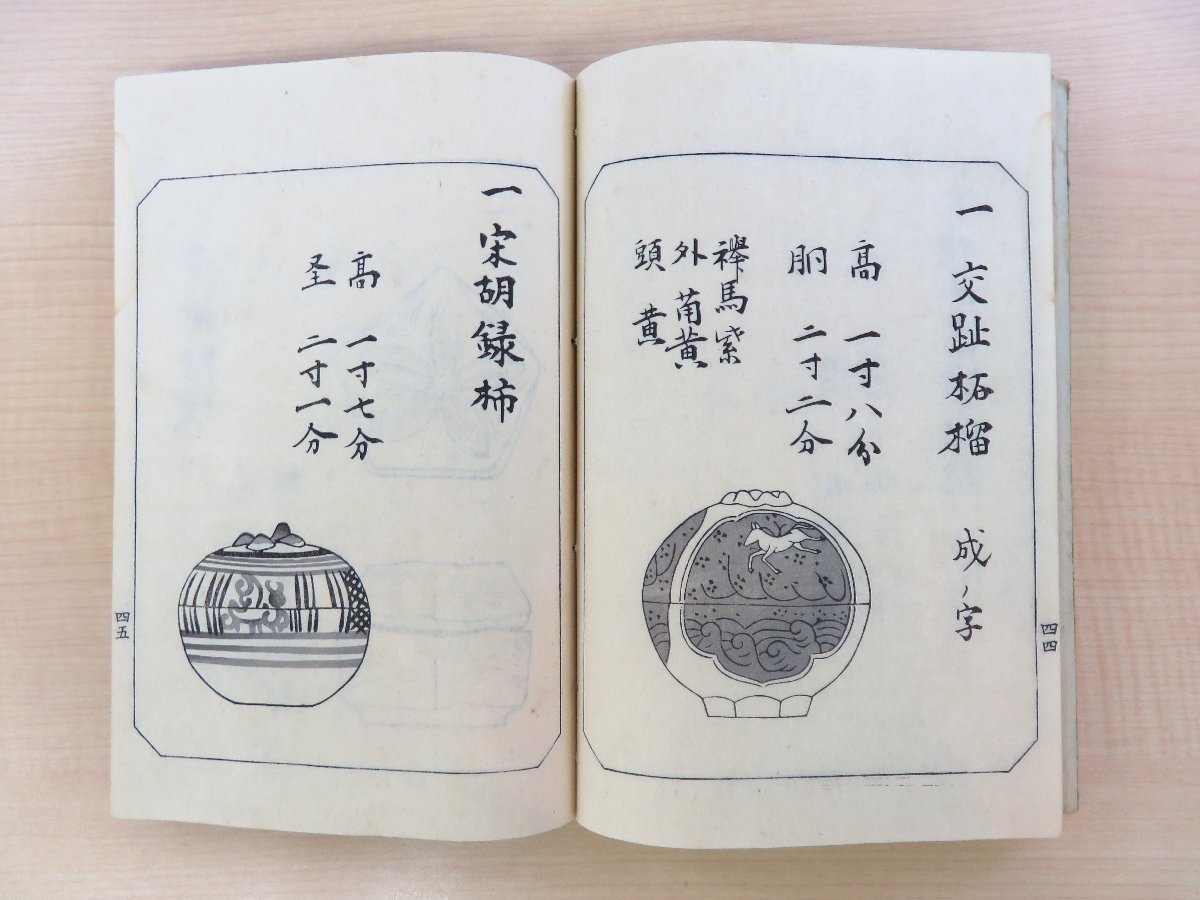 一 交趾柘榴 成ノ字
高 一寸八分
胴 二寸二分
馬紫
外 萌黄
頭 黄
四四
一 宋胡録柿
高 一寸七分
圣 二寸一分
四五